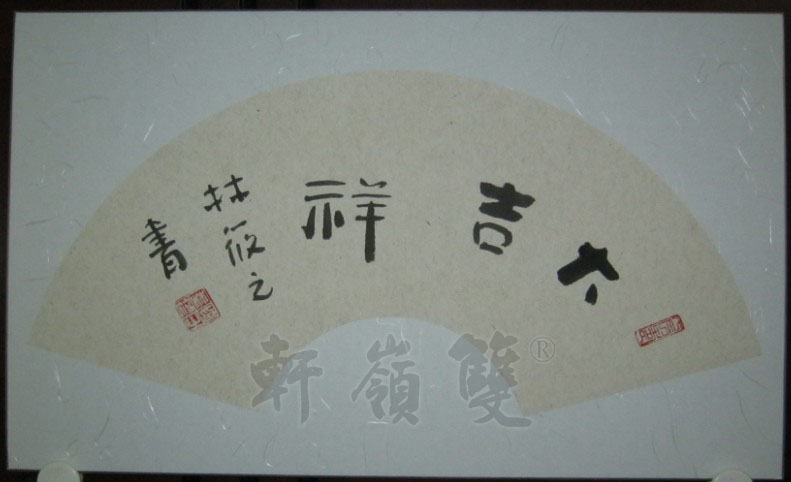 大吉祥
林筱之
書
雙嶺軒®